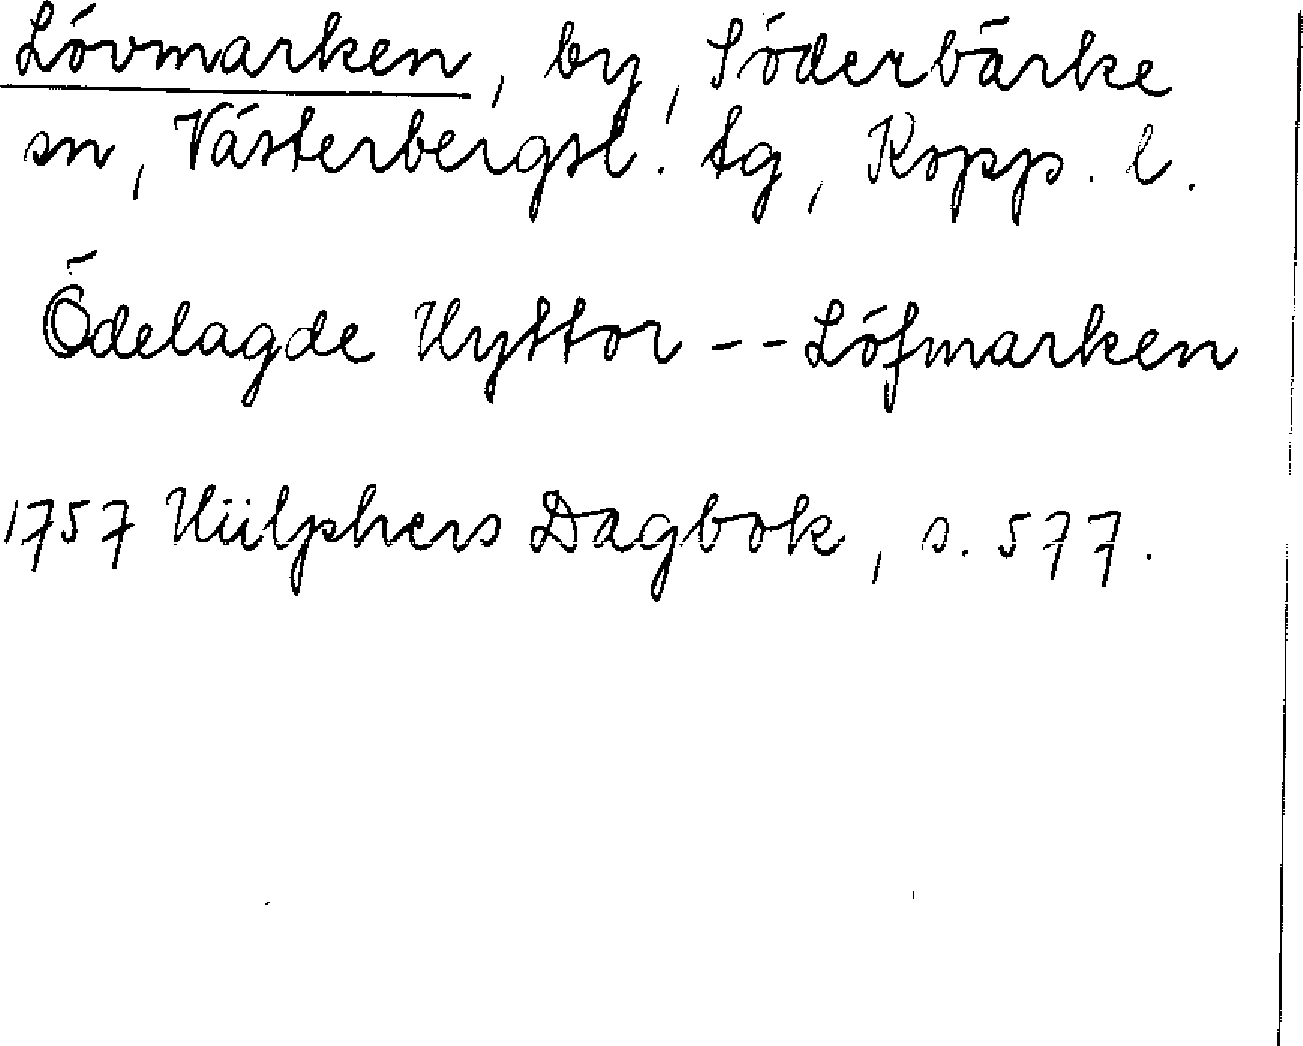 Lövmarken, by, Söderbärke
sn, Västerbergsl. tg, Kopp. l.
Ödelagde Hyttor -- Löfmarken
1757 Hülphers Dagbok, s. 577.